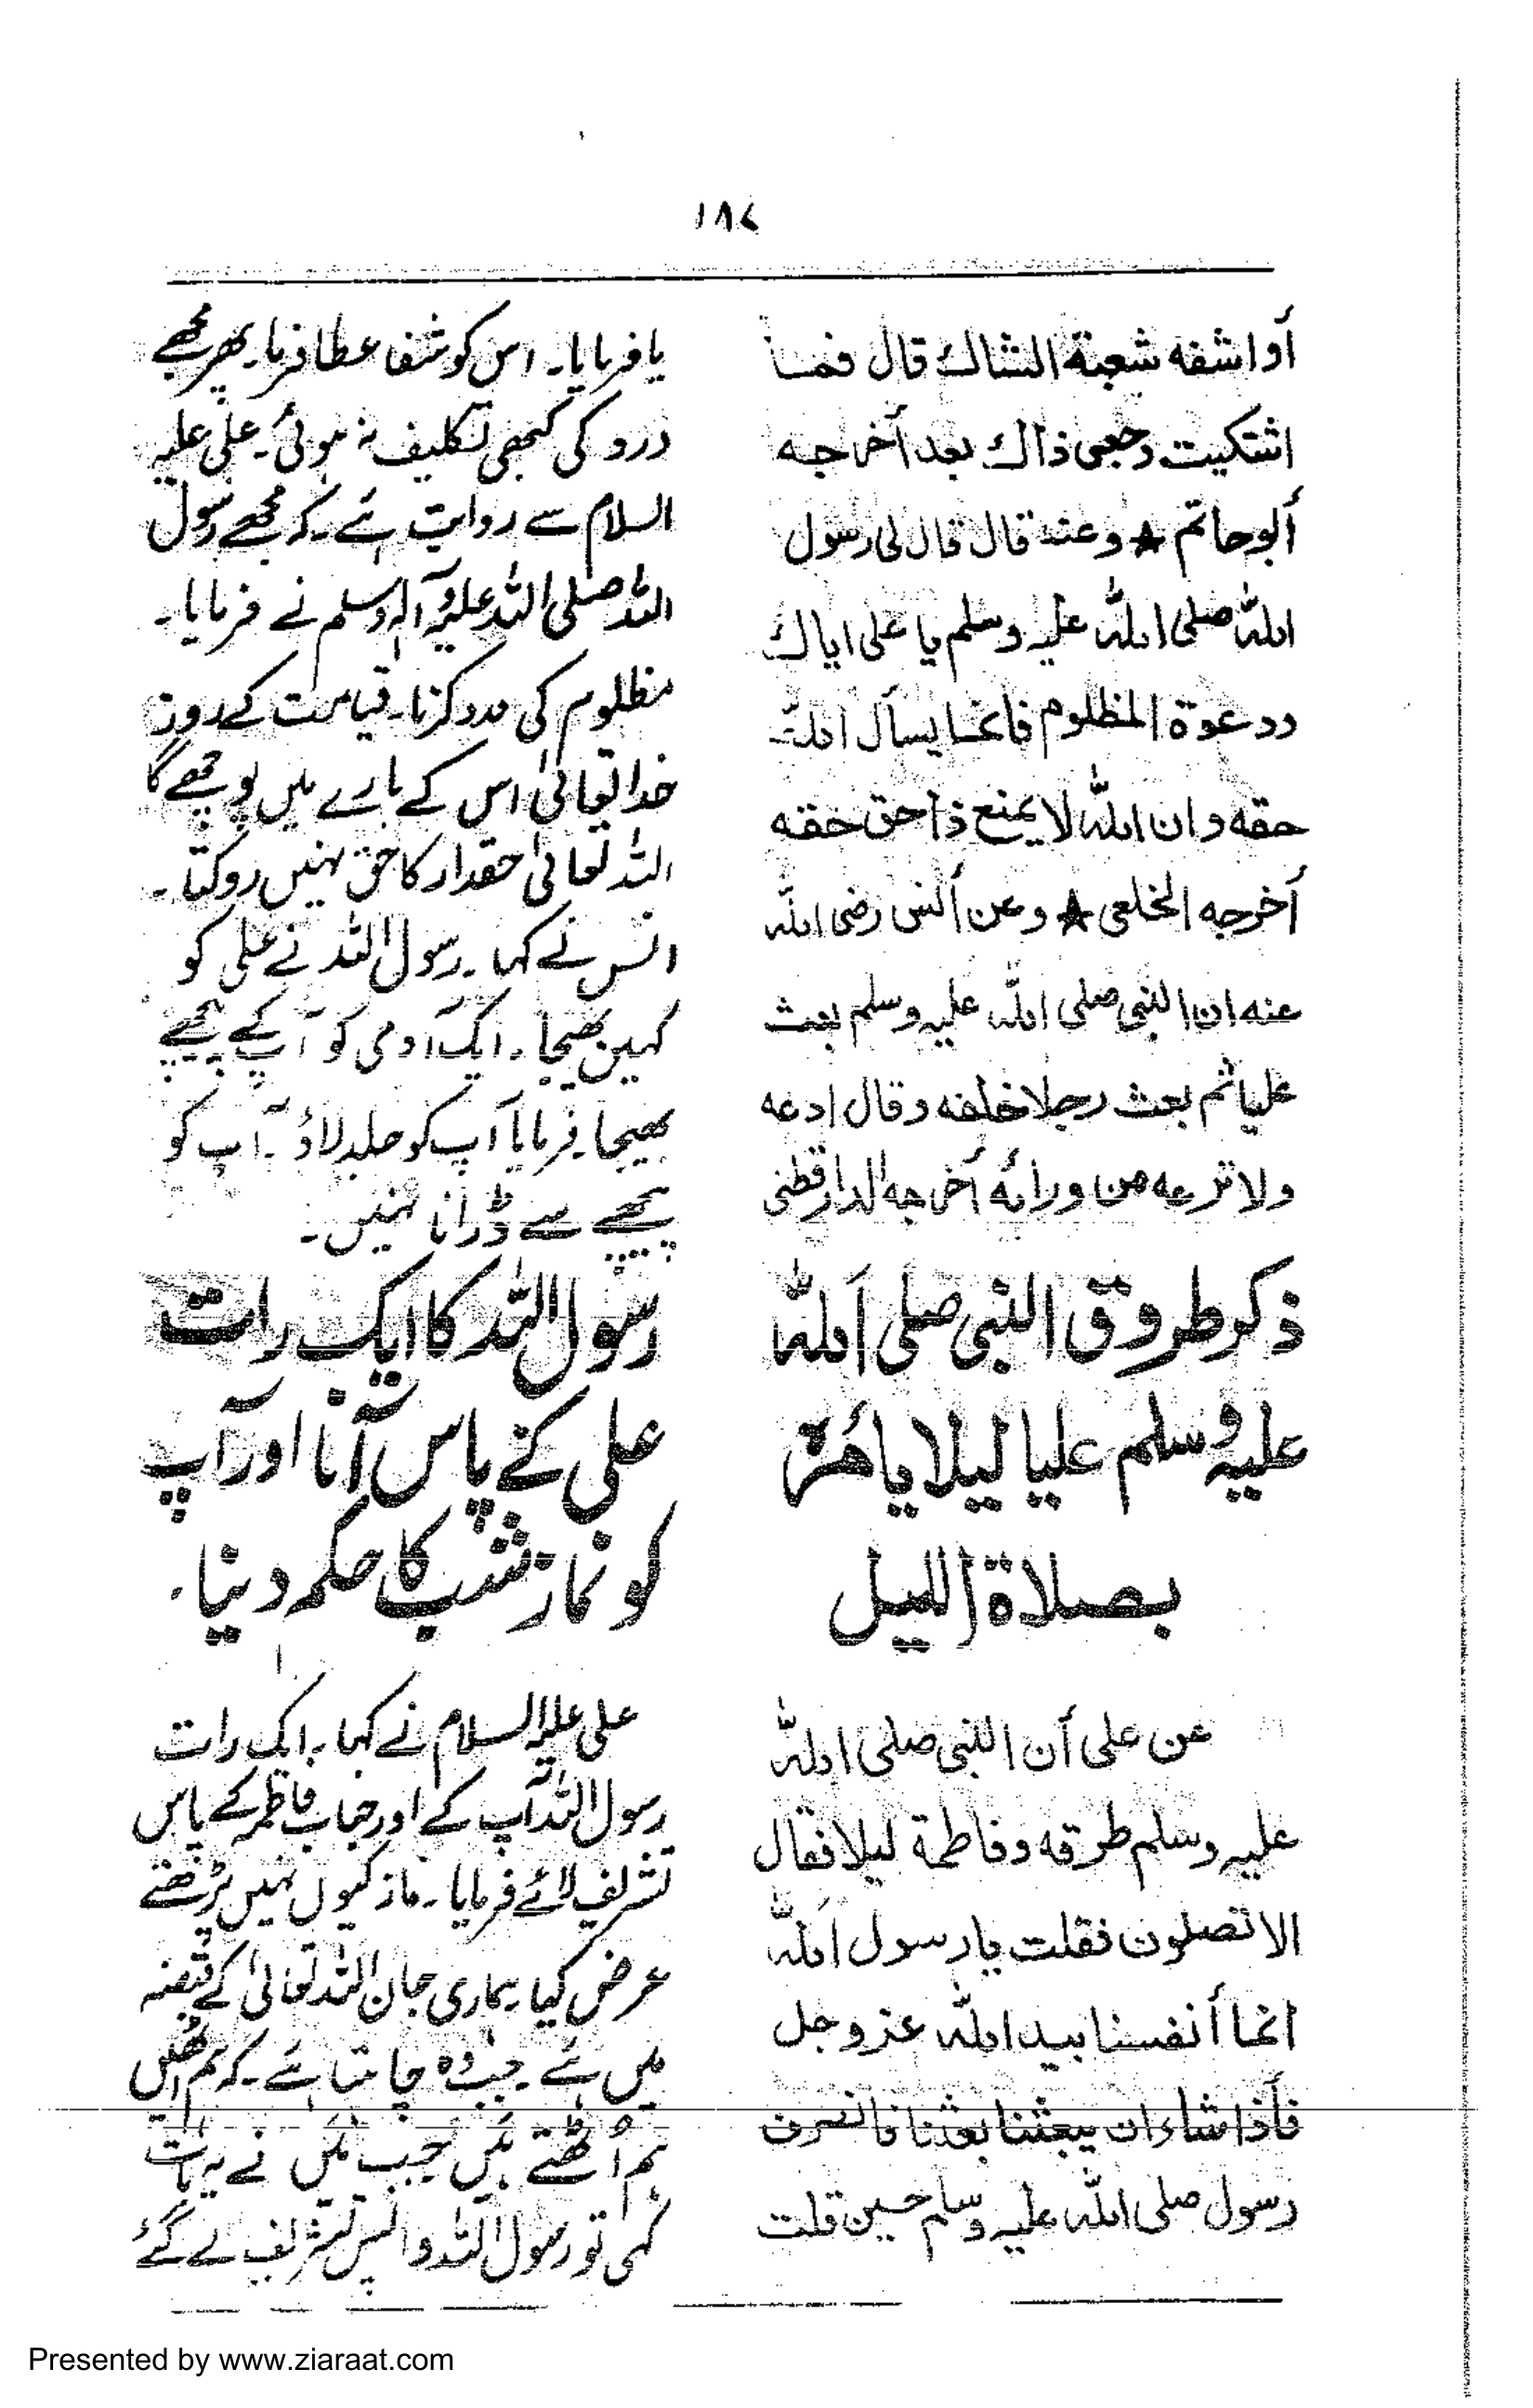 ۱۸۷
أو اشفه شعبة الشاك قال فما
اشتكيت وجعى ذاك بعد أخرجه
أبو حاتم ★ وعنه قال قال لى رسول
الله صلى الله عليه وسلم يا على اياك
ودعوة المظلوم فانما يسأل الله
حقه وان الله لا يمنع ذا حق حقه
أخرجه الخلعى ★ وعن أنس رضى الله
عنه ان النبى صلى الله عليه وسلم بعث
عليا ثم بعث رجلا خلفه وقال ادعه
ولا ترعه من ورائه أخرجه الدارقطنى
ذكر طروق النبى صلى الله
عليه وسلم عليا ليلا يأمره
بصلاة الليل
عن على أن النبى صلى الله
عليه وسلم طرقه وفاطمة ليلا فقال
الا تصلون فقلت يا رسول الله
انما أنفسنا بيد الله عز وجل
فأذا شاء ان يبعثنا بعثنا فانصرف
رسول صلى الله عليه وسلم حين قلت
یا فرمایا۔ اس کو شفا عطا فرما۔ پھر مجھے
درد کی کبھی تکلیف نہ ہوئی۔ علی علیہ
السلام سے روایت ہے۔ کہ مجھے رسول
اللہ صلی اللہ علیہ وآلہ وسلم نے فرمایا۔
مظلوم کی مدد کرنا۔ قیامت کے روز
خدا تعالیٰ اس کے بارے میں پوچھے گا
اللہ تعالیٰ حقدار کا حق نہیں روکتا۔
انس نے کہا۔ رسول اللہ نے علی کو
کہیں بھیجا۔ ایک آدمی کو آپ کے پیچھے
بھیجا۔ فرمایا آپ کو جلد لاؤ۔ آپ کو
پیچھے سے ڈرانا نہیں۔
رسول اللہ کا ایک رات
علی کے پاس آنا اور آپ
کو نماز شب کا حکم دینا۔
علی علیہ السلام نے کہا۔ ایک رات
رسول اللہ آپ کے اور جناب فاطمہ کے پاس
تشریف لائے فرمایا۔ نماز کیوں نہیں پڑھتے
عرض کیا ہماری جان اللہ تعالیٰ کے قبضہ
میں ہے۔ جب وہ چاہتا ہے۔ کہ ہم اٹھیں
ہم اُٹھتے ہیں جب میں نے یہ بات
کہی تو رسول اللہ واپس تشریف لے گئے
Presented by www.ziaraat.com